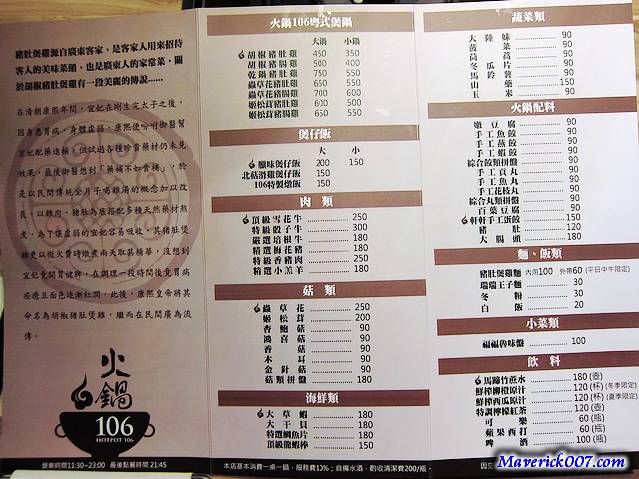 豬肚煲雞源自廣東客家，是客家人用來招待
客人的美味菜餚，也是廣東人的家常菜，關
於胡椒豬肚雞有一段美麗的傳說......
在清朝康熙年間，宜妃在剛生完太子之後，
因身患胃病，身體虛弱，康熙便吩咐御醫幫
宜妃配藥進補，但試過各種珍貴藥材仍未見
效果，最後御醫想到「藥補不如食補」，於
是以民間傳統坐月子喝雞湯的概念加以改
良，以雞肉、豬肚為底搭配多種天然藥材熬
煮，為了讓虛弱的宜妃容易吸收，其豬肚煲
雞更以微火費時燉煮兩天取其精華，沒想到
宜妃食開胃健脾，在調理一段時間後竟胃病
痊癒且面色逐漸紅潤，此後，康熙皇帝將其
命名為胡椒豬肚煲雞，繼而在民間廣為流
傳。
火鍋
106
HOTPOT 106
營業時間11:30~23:00 最後點餐時間 21:45
火鍋106粵式煲鍋
大鍋 小鍋
胡椒豬肚雞 450 350
胡椒豬腸雞 500 400
乾鍋豬肚雞 750 550
蟲草花豬肚雞 650 550
蟲草花豬腸雞 700 600
姬松茸豬肚雞 600 500
姬松茸豬腸雞 650 550
煲仔飯
大 小
臘味煲仔飯 200 150
北菇滑雞煲仔飯 150
106特製燉飯 150
肉 類
頂級雪花牛 250
特級骰子牛 300
嚴選培根牛 180
精選梅花豬 180
特級香豬肉 250
精選小羔羊 180
菇 類
蟲草花 250
姬松茸 200
杏鮑菇 90
鴻喜菇 90
香菇 90
木耳 90
金針菇 90
菇類拼盤 180
海鮮類
大草蝦 180
大干貝 180
特選鯛魚片 180
頂級龍蝦棒 150
本店基本消費一桌一鍋，服務費10%；自備水酒，酌收清潔費200/瓶。
蔬菜類
大陸妹 90
菠菜 90
茼蒿 90
冬瓜片 90
馬鈴薯 90
山藥 150
玉米 90
火鍋配料
嫩豆腐 90
手工魚餃 90
手工燕餃 90
手工蝦餃 90
綜合餃類拼盤 90
手工貢丸 90
手工魚丸 90
手工花枝丸 90
綜合丸類拼盤 90
百葉豆腐 90
軒軒手工蛋餃 150
豬肚 120
大腸頭 180
麵、飯類
豬肚煲雞麵 內用100 外帶60 (平日中午限定)
瑞瑞王子麵 30
冬粉 30
白飯 20
小菜類
福福魯味鍋 100
飲 料
馬蹄竹蔗水 180 (壺)
鮮榨柳橙原汁 120 (杯) (冬季限定)
鮮榨西瓜原汁 120 (杯) (夏季限定)
特調檸檬紅茶 120 (壺)
可樂 60 (瓶)
蘋果西打 60 (瓶)
啤酒 100 (瓶)
Maverick007.com